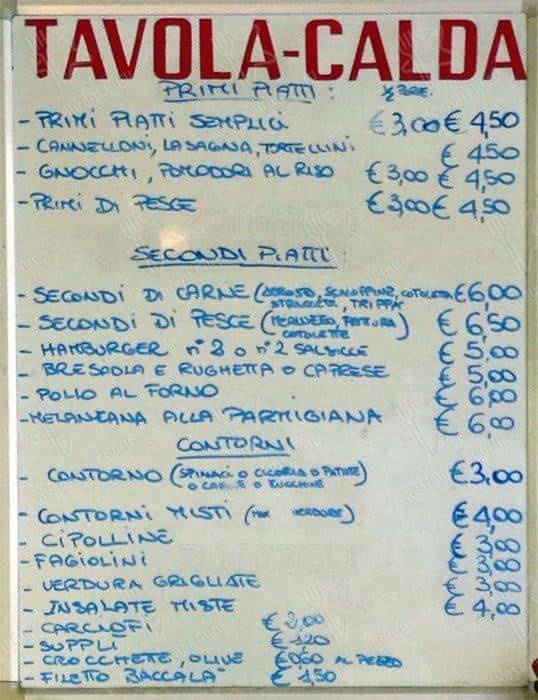 TAVOLA-CALDA
PRIMI PIATTI: ½ POR.
- PRIMI PIATTI SEMPLICI €3,00 € 4,50
- CANNELLONI, LASAGNA, TORTELLINI € 4,50
- GNOCCHI, POMODORI AL RISO €3,00 € 4,50
- PRIMI DI PESCE €3,00 € 4,50
SECONDI PIATTI:
- SECONDI DI CARNE (ARROSTO, SCALOPPINE, COTOLETTA €6,00
STRACCETTI, TRIPPA)
- SECONDI DI PESCE (MERLUZZO, FRITTURA) € 6,50
COTOLETTE
- HAMBURGER n°2 o n°2 SALSICCE € 5,00
- BRESAOLA E RUGHETTA O CAPRESE € 5,00
- POLLO AL FORNO € 6,00
- MELANZANA ALLA PARMIGIANA € 6,00
CONTORNI
- CONTORNO (SPINACI O CICORIA O PATATE) €3,00
O CAROTE O ZUCCHINE
- CONTORNI MISTI (MAX VERDURE) €4,00
- CIPOLLINE € 3,00
- FAGIOLINI € 3,00
- VERDURA GRIGLIATE € 3,00
- INSALATE MISTE € 4,00
- CARCIOFI € 2,00
- SUPPLI € 1,20
- CROCCHETTE, OLIVE €0,60 AL PEZZO
- FILETTO BACCALA' € 1,50